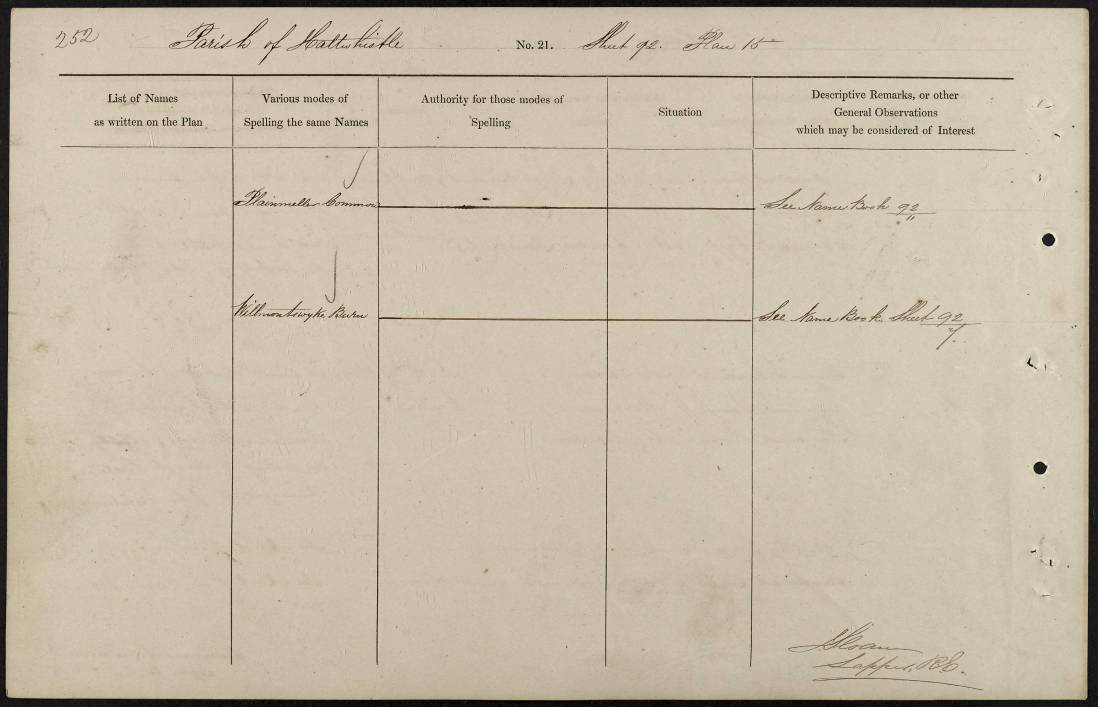 252 Parish of Haltwhistle No. 21. Sheet 92. Plan 15
List of Names
as written on the Plan
Various modes of
Spelling the same Names
Authority for those modes of
Spelling
Situation
Descriptive Remarks, or other
General Observations
which may be considered of Interest
Plainmeller Common
See Name Book 92
11
Willmontswyke Burn
See Name Book Sheet 92
7
Sapper, R.E.